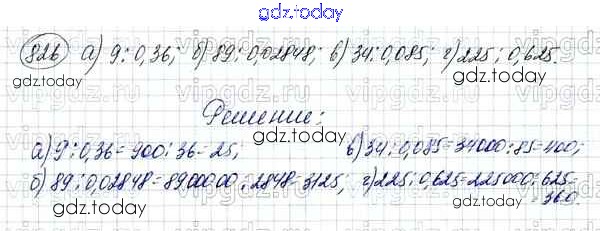 gdz.today
826 а) 9 : 0,36; б) 89 : 0,02848; в) 34 : 0,085; г) 225 : 0,625.
gdz.today gdz.today
Решение:
gdz.today
а) 9 : 0,36 = 900 : 36 = 25; в) 34 : 0,085 = 34000 : 85 = 400;
б) 89 : 0,02848 = 8900000 : 2848 = 3125; г) 225 : 0,625 = 225000 : 625 =
= 360.
gdz.today gdz.today